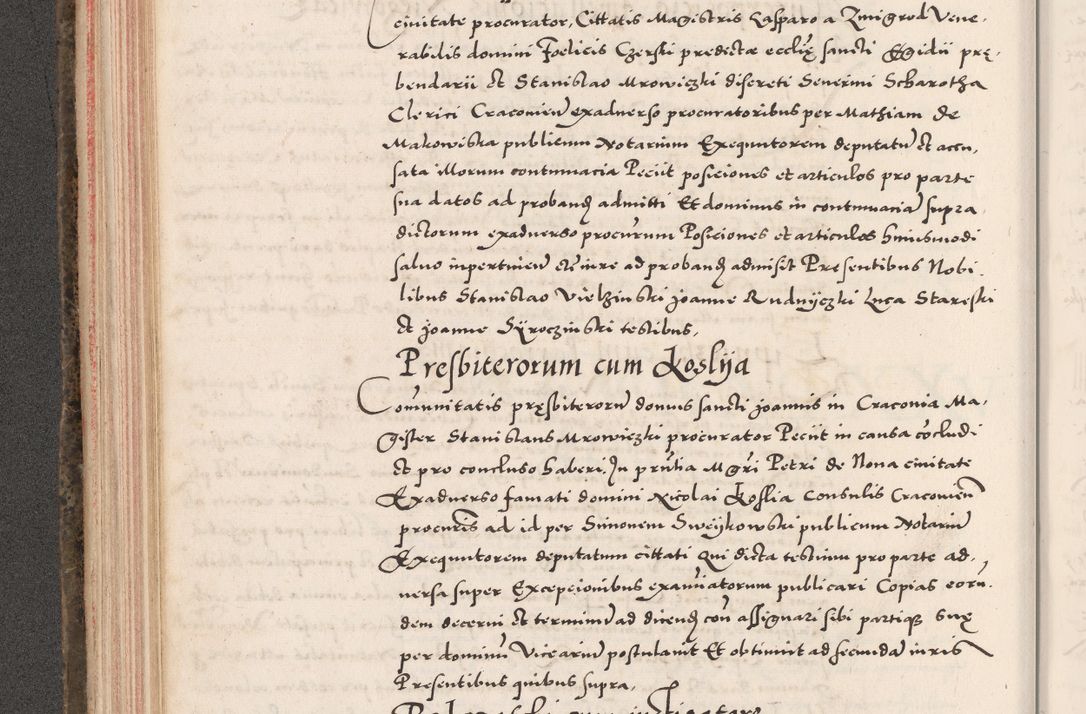 civitate procurator, Cittatis Magistris Gasparo a Zmigrod Vene-
rabilis domini Foelicis Czerski predictæ ecclię sancti Egidii prę-
bendarii et Stanislao Mrowiczki discreti Severini Scharotha
Clerici Cracovien exadverso procuratoribus per Mathiam de
Makowiska publicum Notarium Exequutorem deputatu et accu,
sata illorum contumacia Peciit posiciones et articulos pro parte
sua datos ad proband admitti Et dominus in contumacia supra,
dictorum exadverso procurum Posiciones et articulos huiusmodi
salvo inpertinen et iure ad proband admisit Presentibus Nobi-
libus Stanislao Vielzinski Joanne Rudnyczki Luca Stareski
et Joanne Syroczinski testibus,
Presbiterorum cum Koslya
Comunitatis pręsbiteroru domus sancti Joannis in Cracovia Ma-
gister Stanislaus Mrowiczki procurator Peciit in causa cocludi
et pro concluso haberi. In pritia Mgri Petri de Nova civitate
Exadverso famati domini Nicolai Koslia Consulis Cracovien
procuris ad id per Simonem Sweykowski publicum Notariu
Exequutorem deputatum cittati Qui dicta testium pro parte ad-
versa super Excepcionibus examinatorum publicari Copias eoru-
dem decerni et terminu ad dicend con assignari sibi partique suę
per dominu Vicarium postulavit Et obtinuit ad secunda iuris
Presentibus quibus supra,